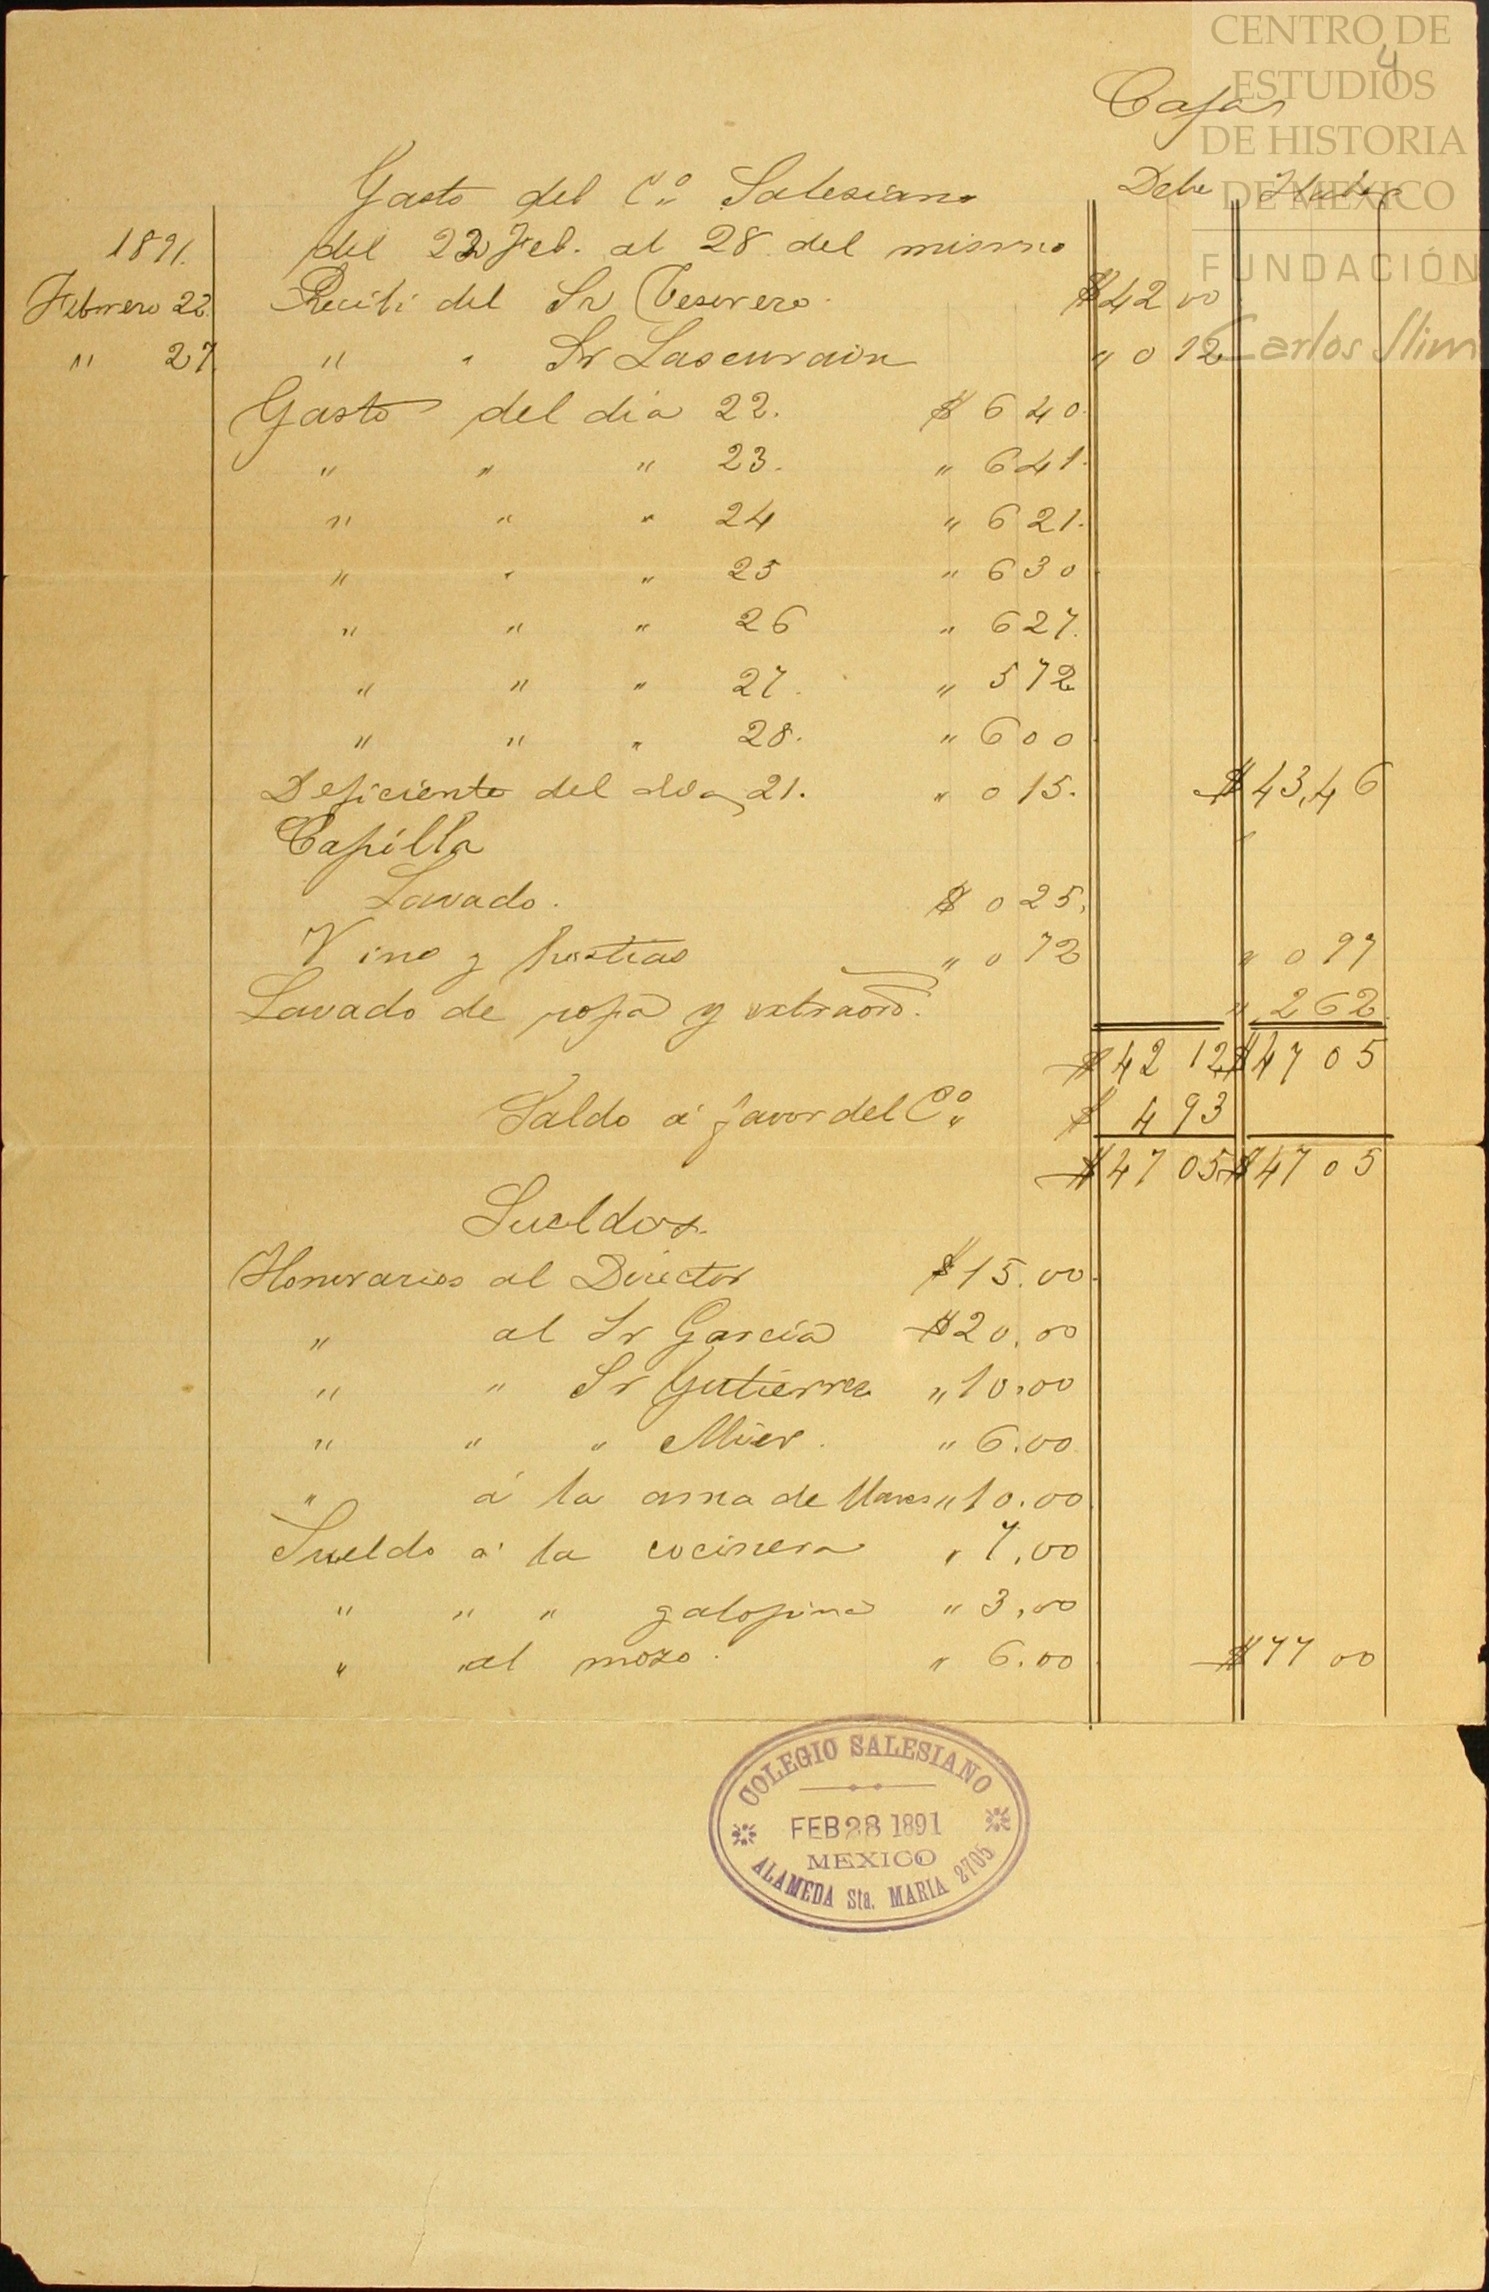 CENTRO DE
ESTUDIOS
DE HISTORIA
DE MÉXICO
FUNDACIÓN
Carlos Slim
4
Caja
Gasto del C.º Salesiano Debe Haber
1891. del 22 Feb. al 28 del mismo
Febrero 22. Recibí del Sr Tesorero. $42 00
" 27 " " Sr Lascurain " 0 12
Gasto del dia 22. $ 6 40
" " " 23. " 6 41.
" " " 24 " 6 21.
" " " 25 " 6 30
" " " 26 " 6 27.
" " " 27. " 5 72
" " " 28. " 6 00
Deficiente del dia 21. " 0 15. $43,46
Capilla
Lavado. $ 0 25,
Vino y hostias " 0 72 " 0 97
Lavado de ropa y extraord. " 2 62
$42 12 $47 05
Saldo á favor del C.º $ 4 93
$47 05 $47 05
Sueldos.
Honorarios al Director $15.00
" al Sr García $20.00
" " Sr Gutierrez " 10.00
" " " Mier. " 6.00
" á la ama de llaves " 10.00
Sueldo á la cocinera " 7.00
" " " galopina " 3.00
" al mozo. " 6.00 $77 00
COLEGIO SALESIANO
FEB 28 1891
MEXICO
ALAMEDA Sta. MARIA 2705